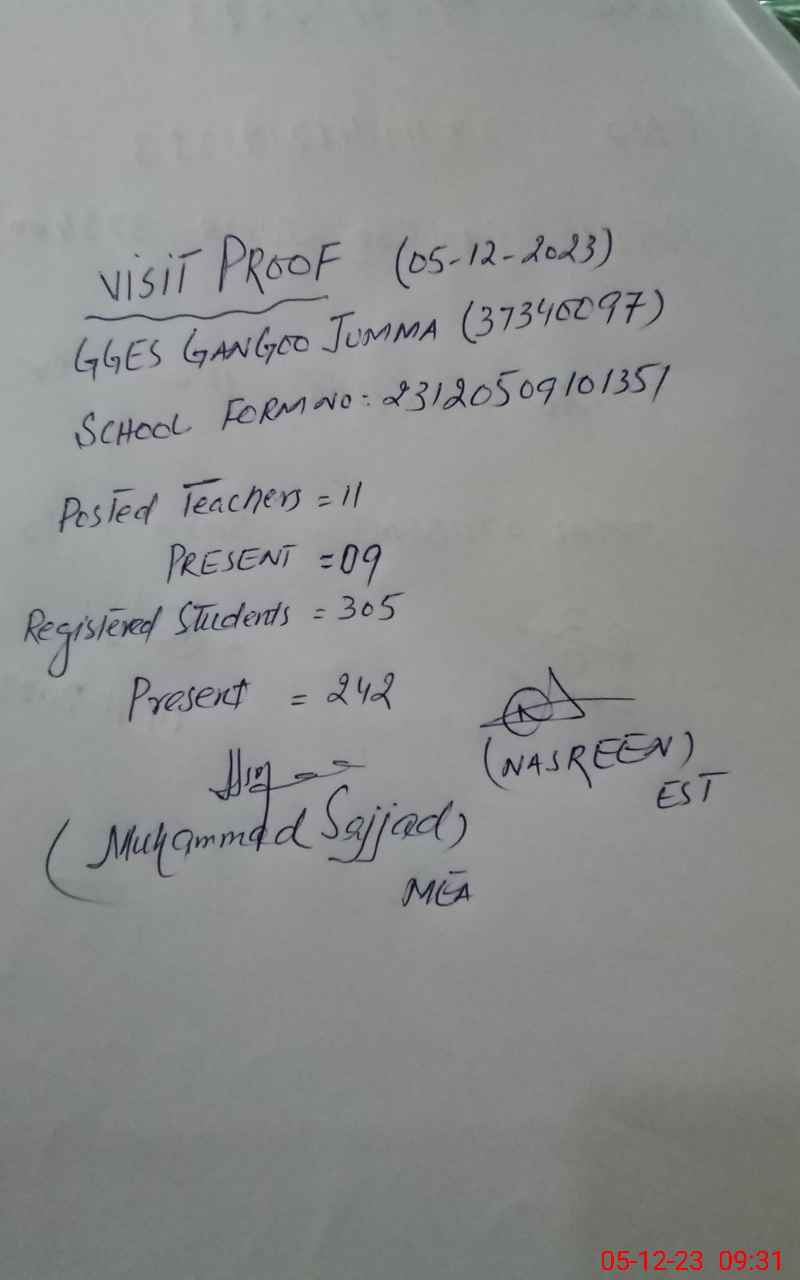 VISIT PROOF (05-12-2023)
GGES GANGOO JUMMA (37340097)
SCHOOL FORM NO: 23120509101351
Posted Teachers = 11
PRESENT = 09
Registered Students = 305
Present = 242
(NASREEN)
EST
(Muhammad Sajjad)
MEA
05-12-23 09:31